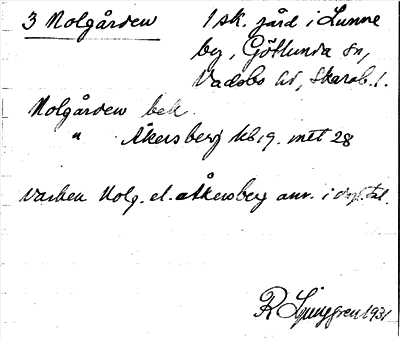 3 Nolgården 1 sk. gård i Lunne
by, Götlunda sn,
Vadsbo hd, Skarab. l.
Nolgården bek.
" Åkersberg kb 19. mtl 28
Varken Nolg. el. Åkersberg anv. i dagl. tal.
R Ljunggren 1931